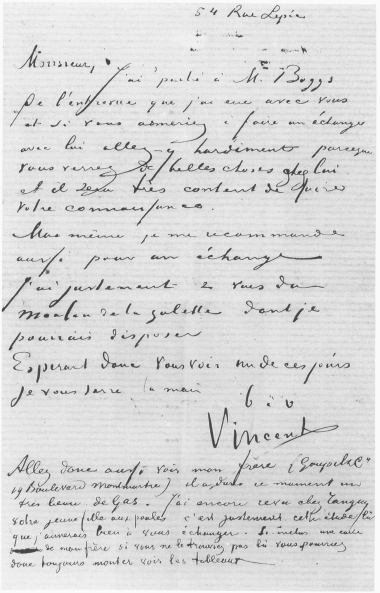 54 Rue Lepic
Monsieur,
J'ai parlé à Mr Boggs
de l'entrevue que j'ai eue avec vous
et si vous aimeriez à faire un échange
avec lui allez-y hardiments parceque
vous verrez de belles choses chez lui
et il sera très content de faire
votre connaissance.
Moi même je me recommande
aussi pour un échange
J'ai justement 2 vues du
moulin de la galette dont je
pourrais disposer
Esperant donc vous voir un de ces jours
je vous serre la main
b à v
Vincent
Allez donc aussi voir mon frère (Goupil & Cie
19 Boulevard Montmartre) il a dans ce moment un
tres beau de Gas. J'ai encore revu chez Tanguy
votre jeune fille aux poules c'est justement cette étude là
que j'aimerais bien à vous échanger. Si inclus une carte
de mon frère si vous ne le trouviez pas là vous pourriez
donc toujours monter voir les tableaux